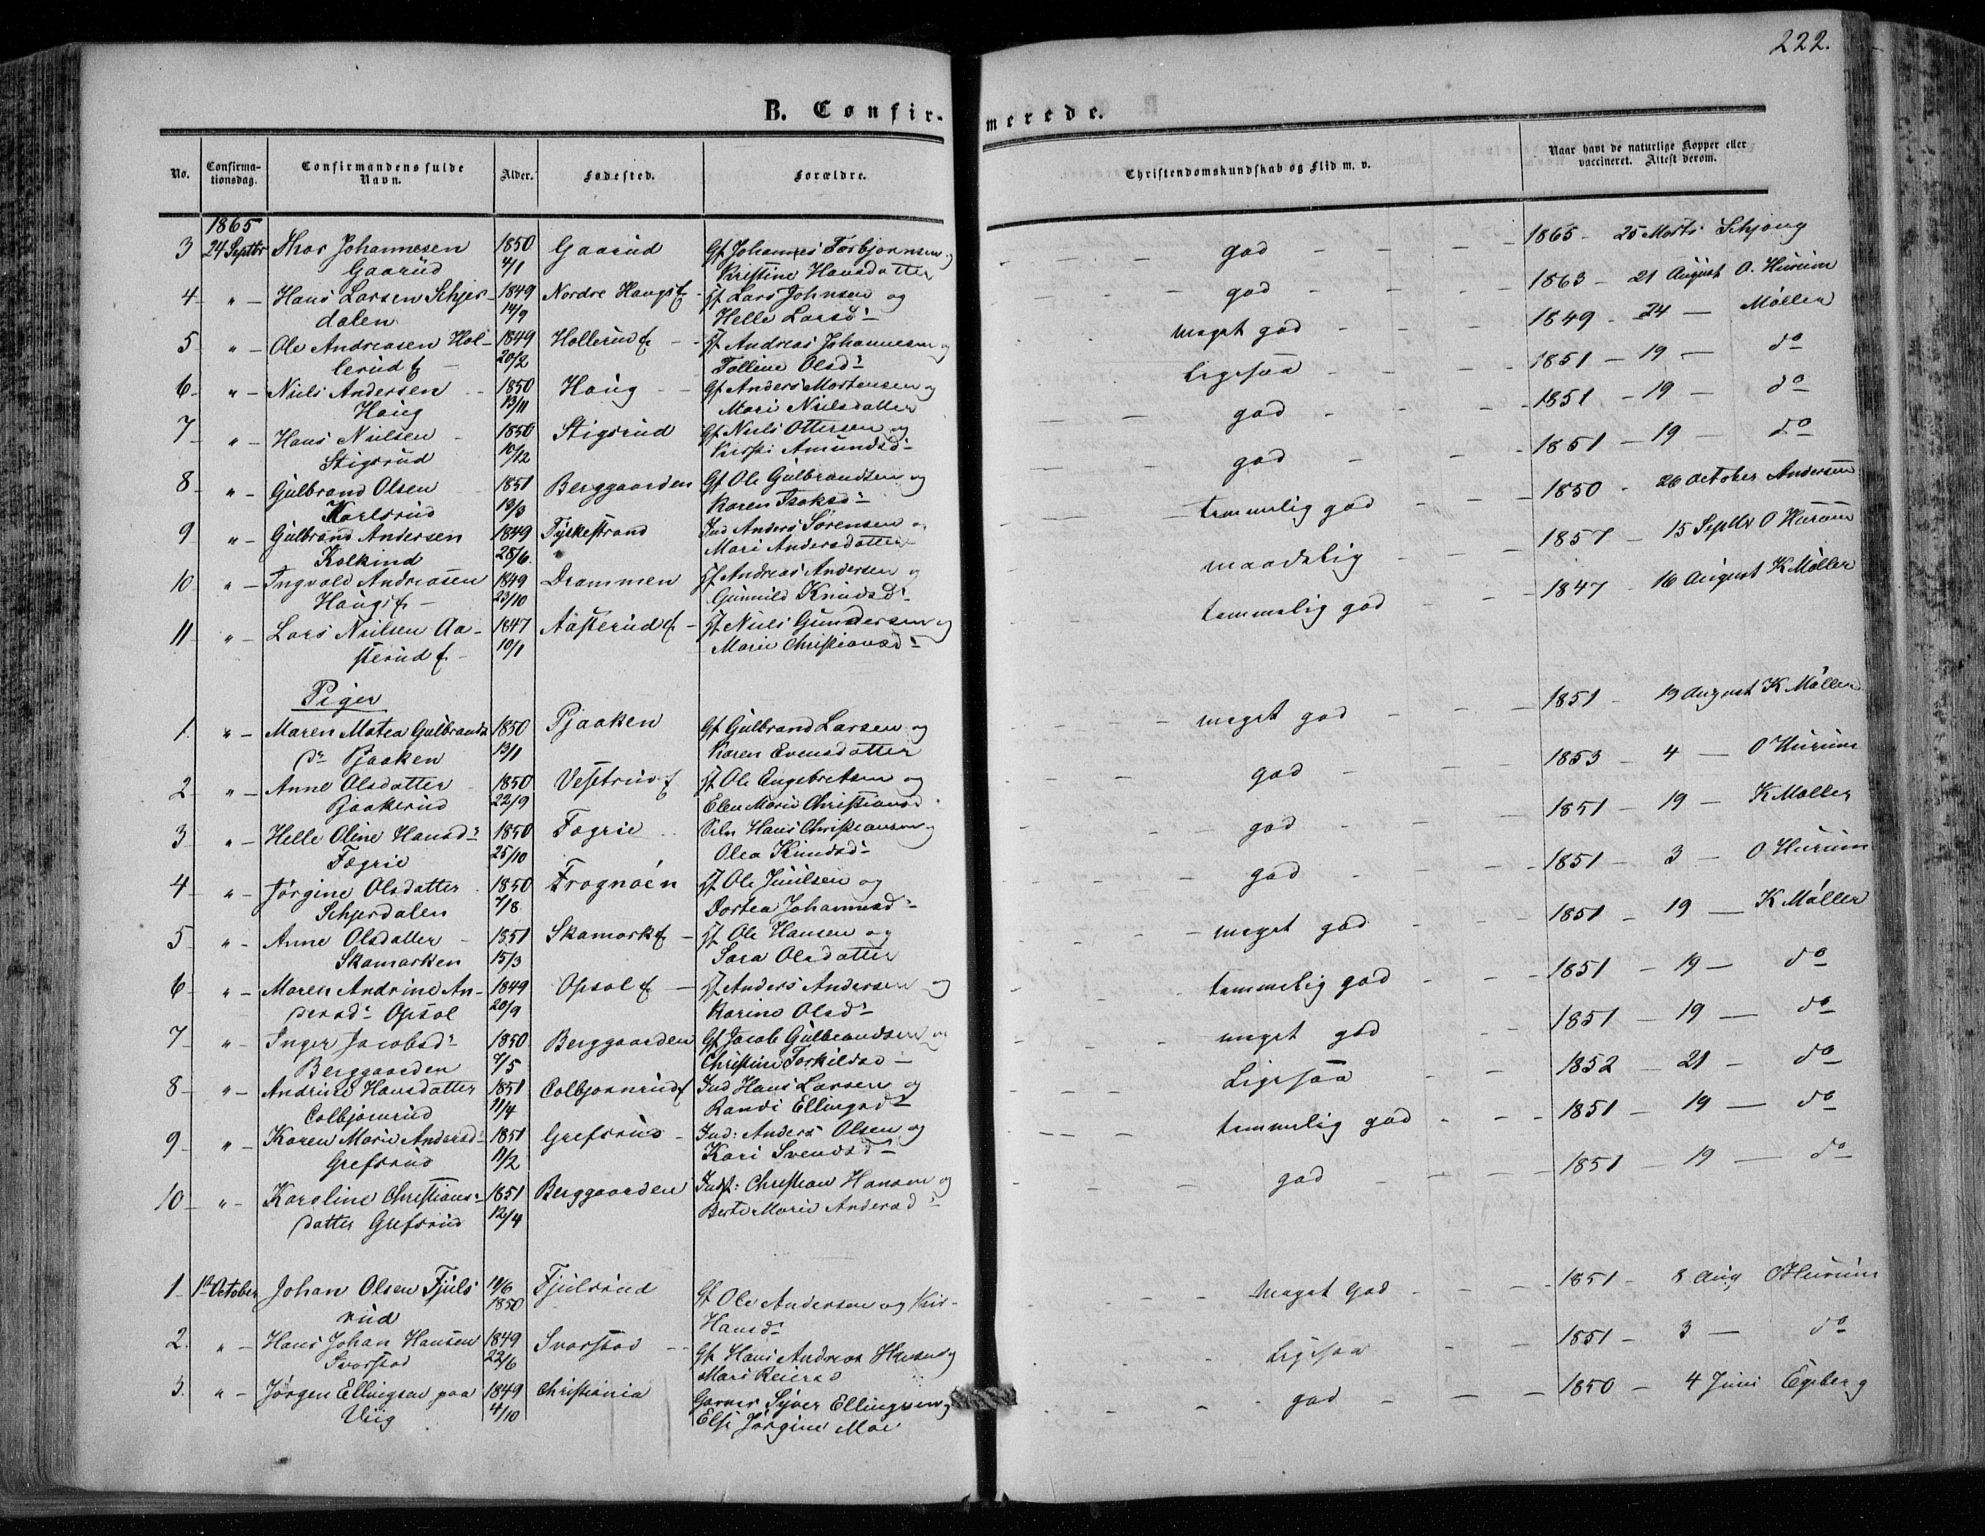 222.
B. Confirmerede.
No. Confirmationsdag. Confirmandens fulde Navn. Alder. Fødested. Forældre. Christendomskundskab og Flid m. v. Naar havt de naturlige Kopper eller vaccineret. Attest derom.
1865
3 24 Septbr Thor Johannesen 1850 Gaarud Gf Johannes Torbjornsen og god 1865 - 25 Marts Schjong
Gaarud 4/1 Kristine Hansdatter
4 " Hans Larsen Schjer- 1849 Nordre Haugsf - Jf Lars Johnsen og god 1863 - 21 August O. Hurum
dalen 14/9 Helle Larsd
5 " Ole Andreasen Hol- 1849 Hollerud f - Jf Andreas Johannesen og meget god 1849 - 24 - Møller
lerud f 20/2 Tolline Olsd
6 " Niels Andersen 1850 Haug Gf Anders Mortensen og Ligesaa 1851 - 19 - do
Haug 13/11 Mari Nielsdatter
7 " Hans Nielsen 1850 Stigsrud Gf Niels Ottersen og god 1851 - 19 - do
Stigsrud 10/12 Kirsti Amundsd
8 " Gulbrand Olsen 1851 Berggaarden Gf Ole Gulbrandsen og god 1851 - 19 - do
Karlsrud 13/3 Karen Isaksd
9 " Gulbrand Andersen 1849 Tyskestrand Ind Anders Sørensen og temmelig god 1850 - 26 October Andersen
Kolkind 28/6 Mari Andersdatter
10 " Ingvald Andreasen 1849 Drammen Jf Andreas Andersen og maadelig 1857 - 15 Septbr O Hurum
Haugsf 23/10 Gunnild Knudsd
11 " Lars Nielsen Aa- 1847 Aasterud f - Jf Niels Gundersen og temmelig god 1847 - 16 August K Møller
sterud f 10/1 Marie Christiansd
Piger
1. " Maren Matea Gulbrands 1850 Pjaaken Gf Gulbrand Larsen og meget god 1851 - 19 August K Møller
dr Pjaaken 13/11 Karen Evensdatter
2 " Anne Olsdatter 1850 Vestrud f Jf Ole Engebretsen og god 1853 - 4 - O Hurum
Pjaakerud 22/9 Elen Marie Christiansd
3 " Helle Oline Hansd 1850 Fagrie Hans Christiansen og god 1851 - 19 - K Møller
Fagrie 25/10 Olea Knudsd
4 " Jørgine Olsdatter 1850 Frognøen Jf Ole Juulsen og god 1851 - 3 - O Hurum
Schjerdalen 7/8 Dortea Johannesd
5 " Anne Olsdatter 1851 Skamarkf - Jf Ole Hansen og meget god 1851 - 19 - K Møller
Skamarken 15/3 Sara Olsdatter
6 " Maren Andrine An- 1849 Opsal f - Jf Anders Andersen og temmelig god 1851 - 19 - do
dersd Opsal 20/9 Karine Olsd
7 " Inger Jacobsd 1850 Berggaarden Gf Jacob Gulbrandsen og meget god 1851 - 19 - do
Berggaarden 7/5 Christine Torkildsd
8 " Andrine Hansdatter 1851 Colbjornrud f Ind Hans Larsen og Ligesaa 1852 - 21 - do
Colbjornrud 11/4 Randi Ellingsd
9 " Karen Marie Andersd 1851 Grefsrud - Ind: Anders Olsen og temmelig god 1851 - 19 - do
Grefsrud 11/2 Kari Svendsd
10 " Karoline Christians- 1851 Berggaarden Indf: Christian Hansen og god 1851 - 19 - do
datter Grefsrud 12/4 Berte Marie Andersd
1 1st October Johan Olsen Fjuls 10/6 Fjulsrud Gf Ole Andersen og Kir- Meget god 1851 - 8 Aug O Hurum
rud 1850 Hansd
2. " Hans Johan Hansen 1849 Svarstad Gf Hans Andreas Hansen og Ligesaa 1851 - 3 - do
Svarstad 22/6 Mari Reiersd
3. " Jørgen Ellingsen paa 1849 Christiania Garver Syver Ellingsen og god 1850 - 4 Juni Egeberg
Viig 4/10 Else Jørgine Moe